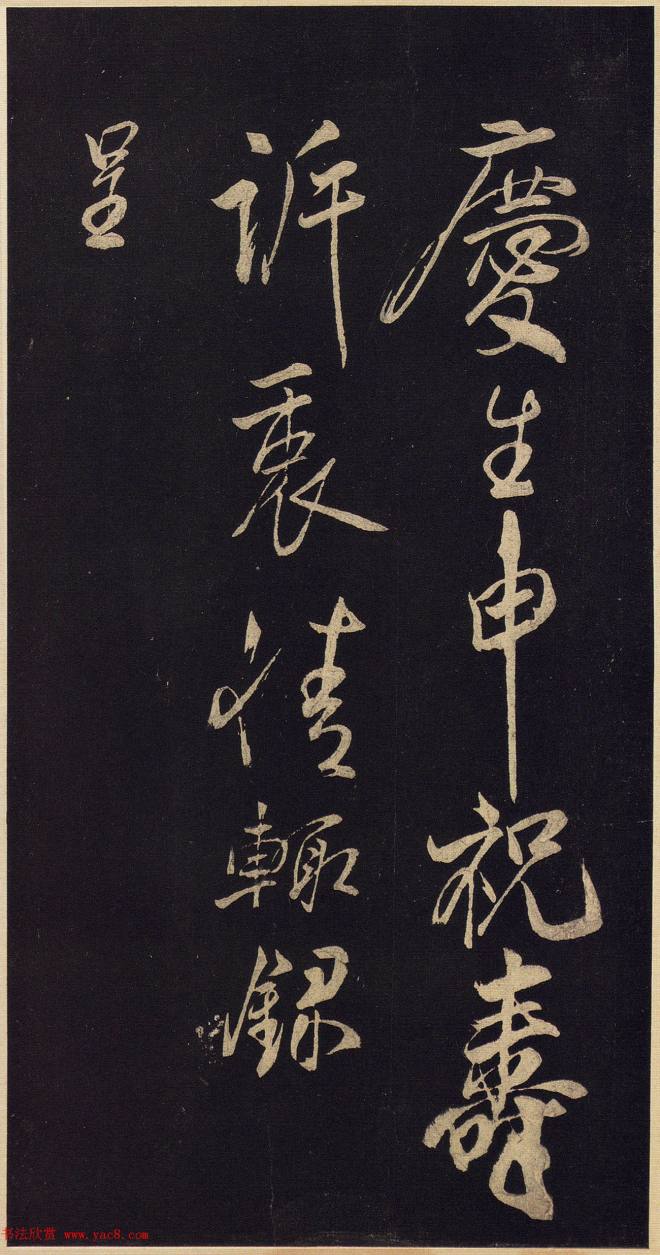 慶生申祝壽
訴衷情輙錄
呈
书法欣赏 www.yac8.com